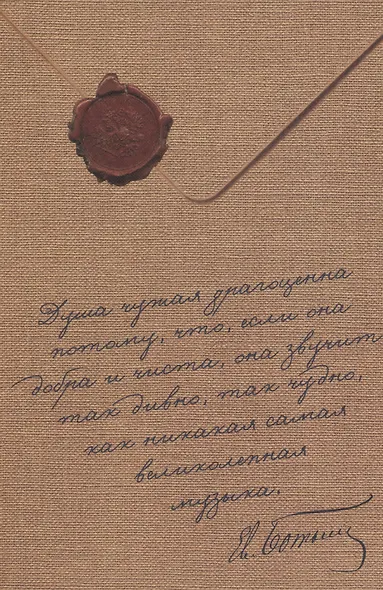 Душа чужая драгоценна
потому, что, если она
добра и чиста, она звучит
так дивно, так чудно,
как никакая самая
великолепная
музыка.
Ев. Боткин